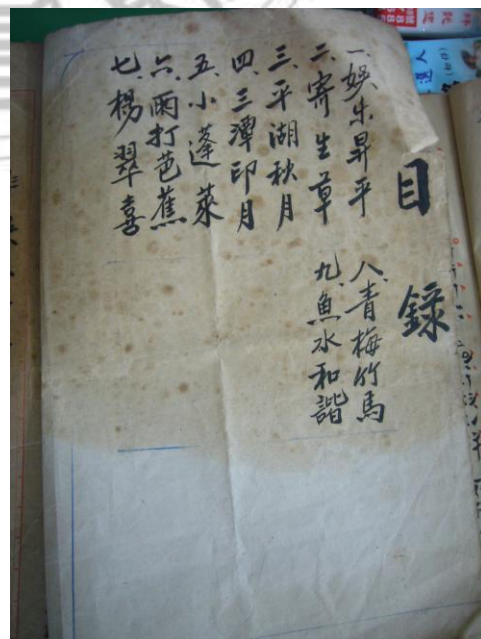 目錄
一、娛乐昇平
二、寄生草
三、平湖秋月
四、三潭印月
五、小蓬萊
六、雨打芭蕉
七、楊翠喜
八、青梅竹馬
九、魚水和諧